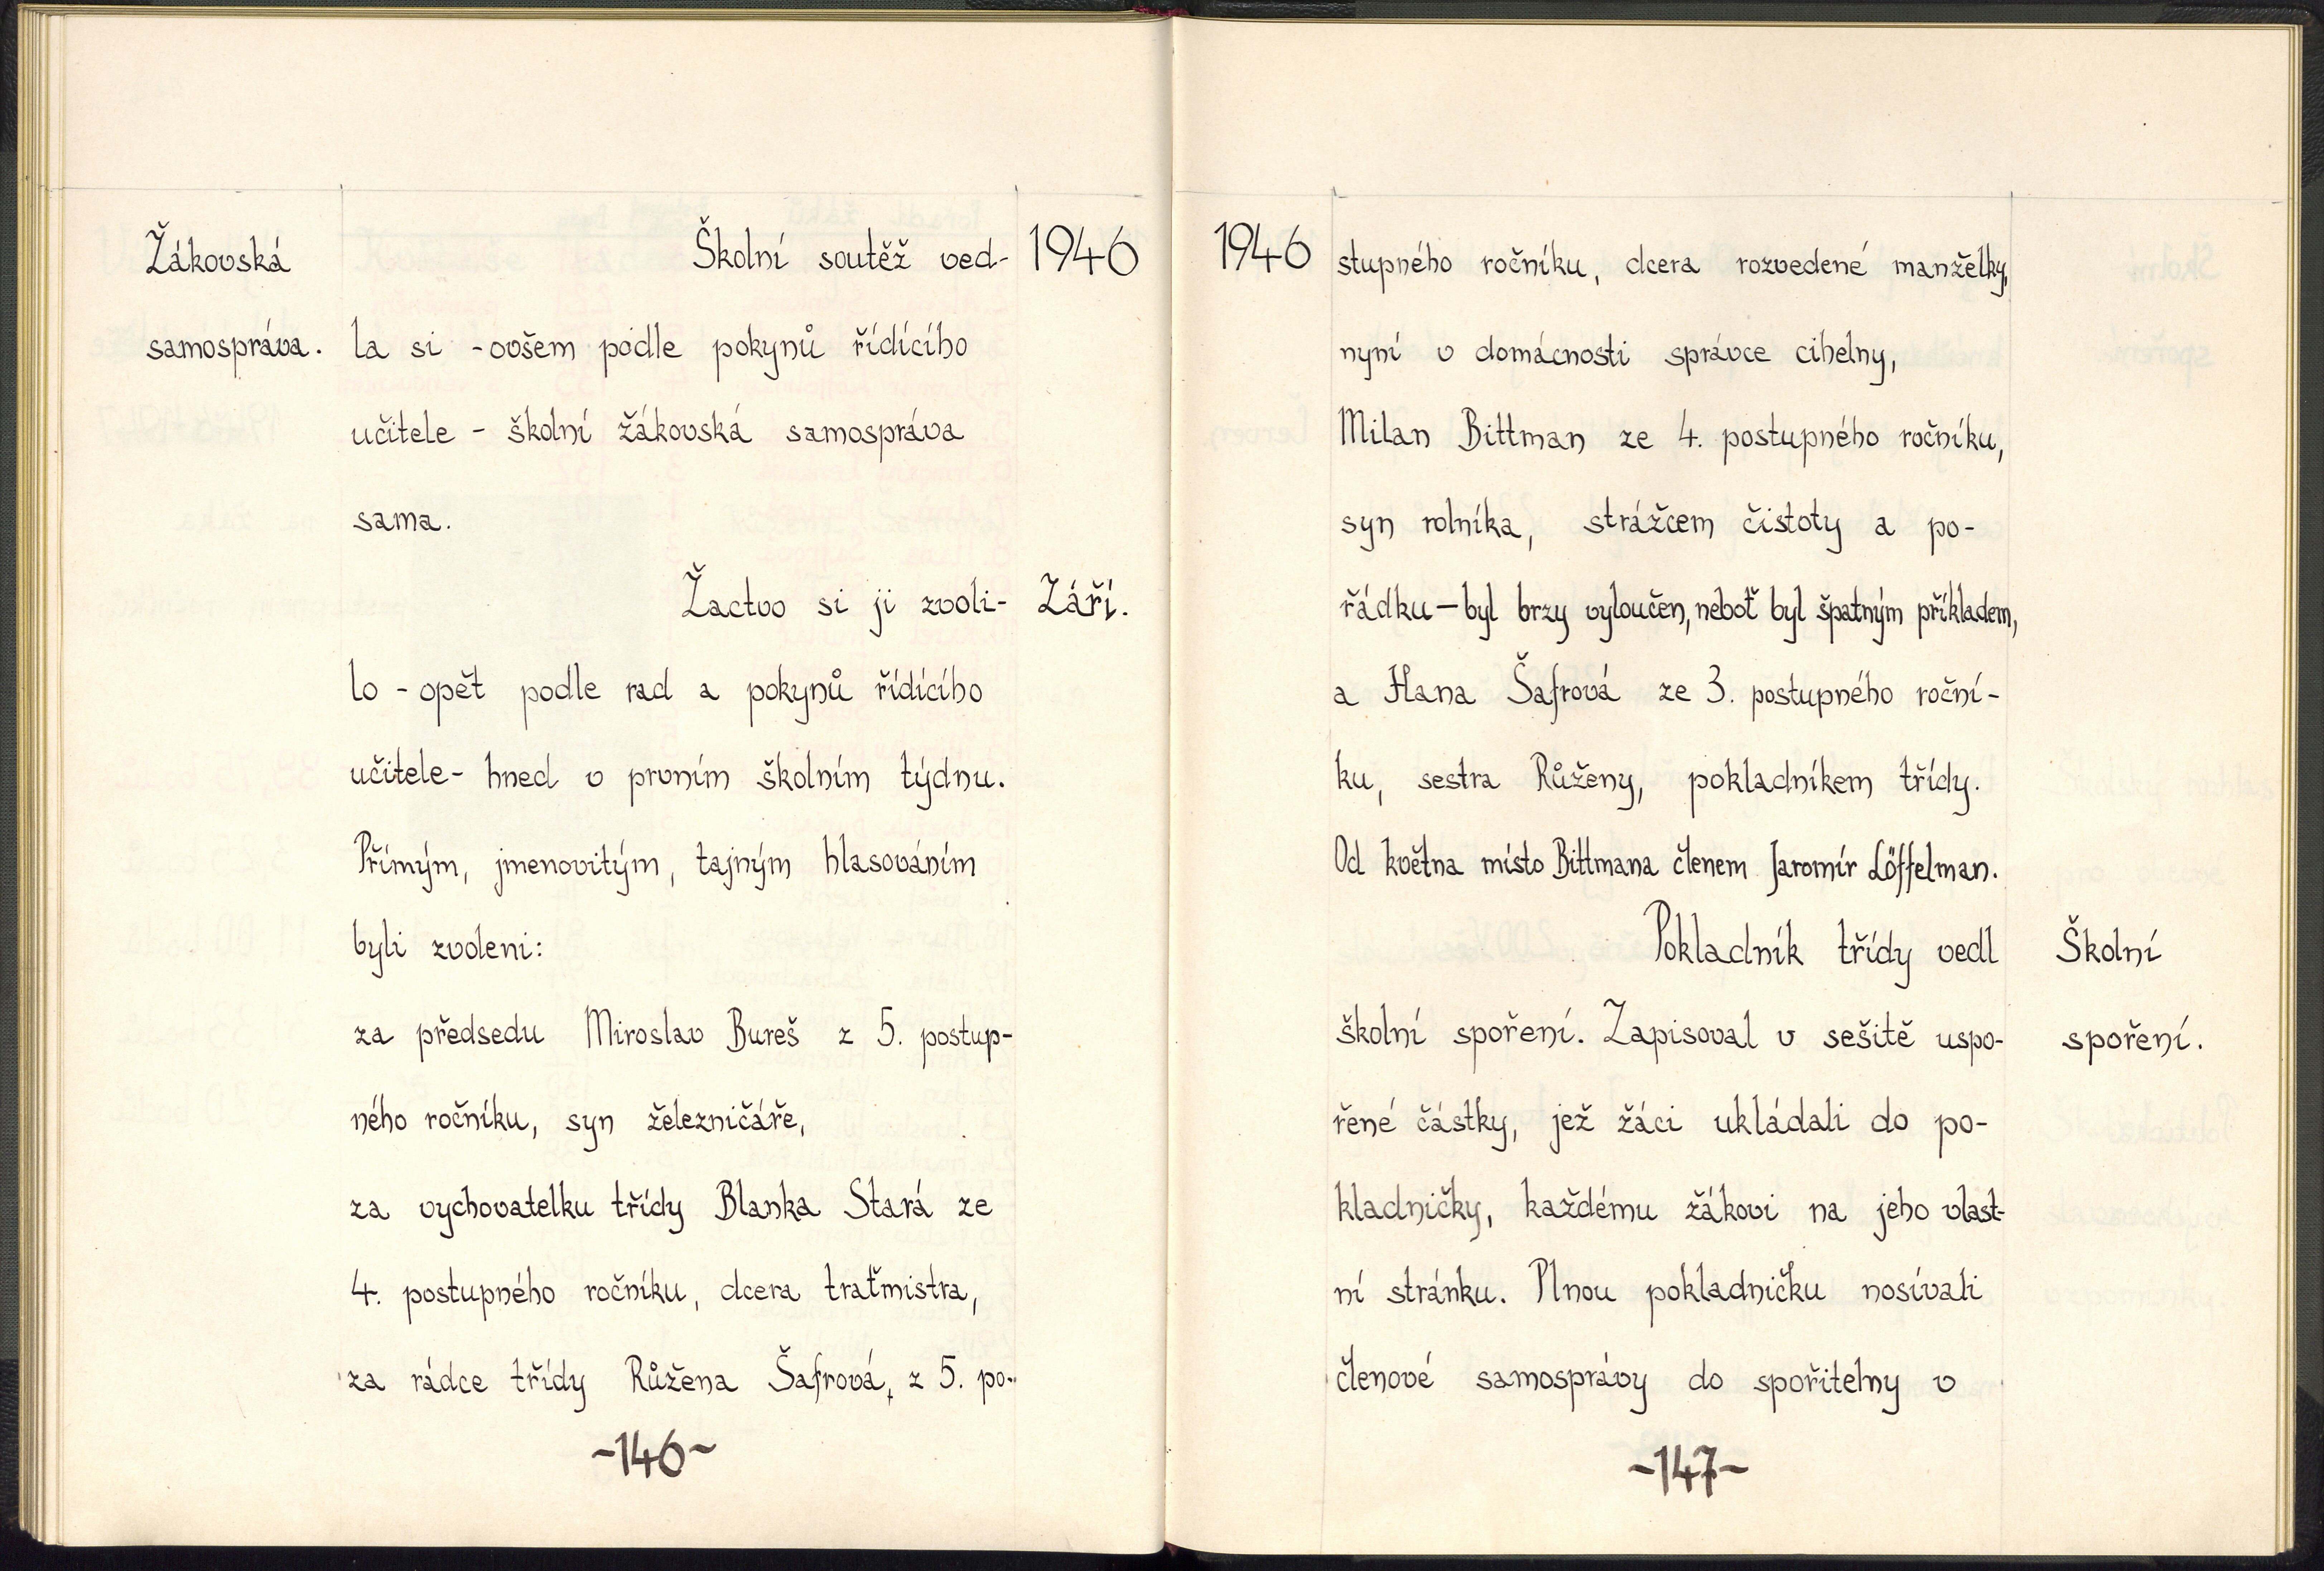 Žákovská
samospráva.
Školní soutěž ved-
la si - ovšem podle pokynů řídícího
učitele - školní žákovská samospráva
sama.
Žactvo si ji zvoli-
lo - opět podle rad a pokynů řídícího
učitele - hned v prvním školním týdnu.
Přímým, jmenovitým, tajným hlasováním
byli zvoleni:
za předsedu Miroslav Bureš z 5. postup-
ného ročníku, syn železničáře,
za vychovatelku třídy Blanka Stará ze
4. postupného ročníku, dcera traťmistra,
za rádce třídy Růžena Šafrová, z 5. po-
1946
Září.
~146~
1946
stupného ročníku, dcera rozvedené manželky,
nyní v domácnosti správce cihelny,
Milan Bittman ze 4. postupného ročníku,
syn rolníka, strážcem čistoty a po-
řádku — byl brzy vyloučen, neboť byl špatným příkladem,
a Hana Šafrová ze 3. postupného roční-
ku, sestra Růženy, pokladníkem třídy.
Od května místo Bittmana členem Jaromír Löffelman.
Pokladník třídy vedl
školní spoření. Zapisoval v sešitě uspo-
řené částky, jež žáci ukládali do po-
kladničky, každému žákovi na jeho vlast-
ní stránku. Plnou pokladničku nosívali
členové samosprávy do spořitelny v
Školní
spoření.
~147~